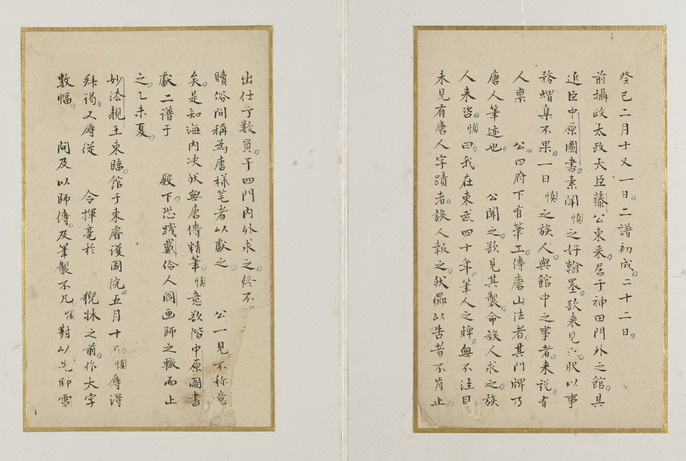 癸巳二月十又一日。二譜初成。二十二日。
前攝政太政大臣藤公東来。居于神田門外之館。其
近臣中原圖書。素聞慎之好翰墨。欲来見。眠以事
務蝟集不果。一日慎之族人。與館中之事者。来説有
人稟公曰府下有筆工傳唐山法者。其門牌乃
唐人筆迹也。公聞之欲見其製。命族人求之。族
人来咨。慎曰我在東武四十年。筆人之牌。無不注目
未見有唐人字蹟者。族人報之。然鄰以告者不肯止。
出仕丁数員。于四門内外求之。終不
購俗間称為唐様筆者以献之。公一見不称意
矣。是知海内决然無唐傳精筆。慎意欲階中原圖書
献二譜于殿下。恐残戴伶人圖画師之轍而止
之。乙未夏。
妙法親王東臨。館于東睿護國院。五月十 慎辱得
拜謁。又辱従令揮毫於猊牀之前。作大字
数幅。問及以師傳。及筆製不凡。慎對以先師雪